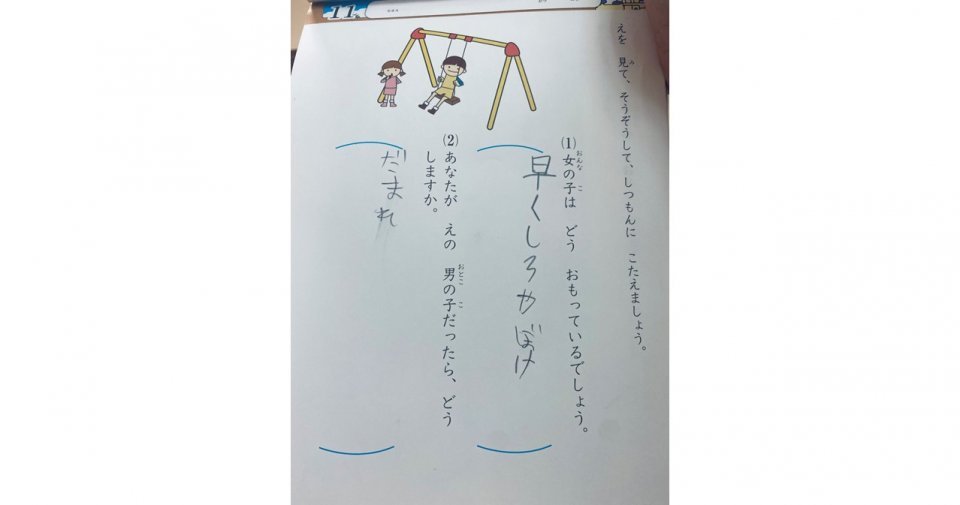 11
えを 見て、そうぞうして、しつもんに こたえましょう。
(1)女の子は どう おもっているでしょう。
早くしろやぼけ
(2)あなたが えの 男の子だったら、どう
しますか。
だまれ